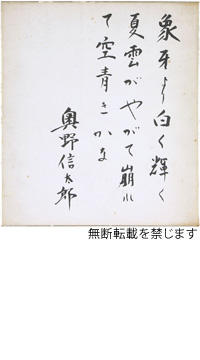 象牙より白く輝く
夏雲がやがて崩れ
て空青きかな
奥野信太郎
無断転載を禁じます